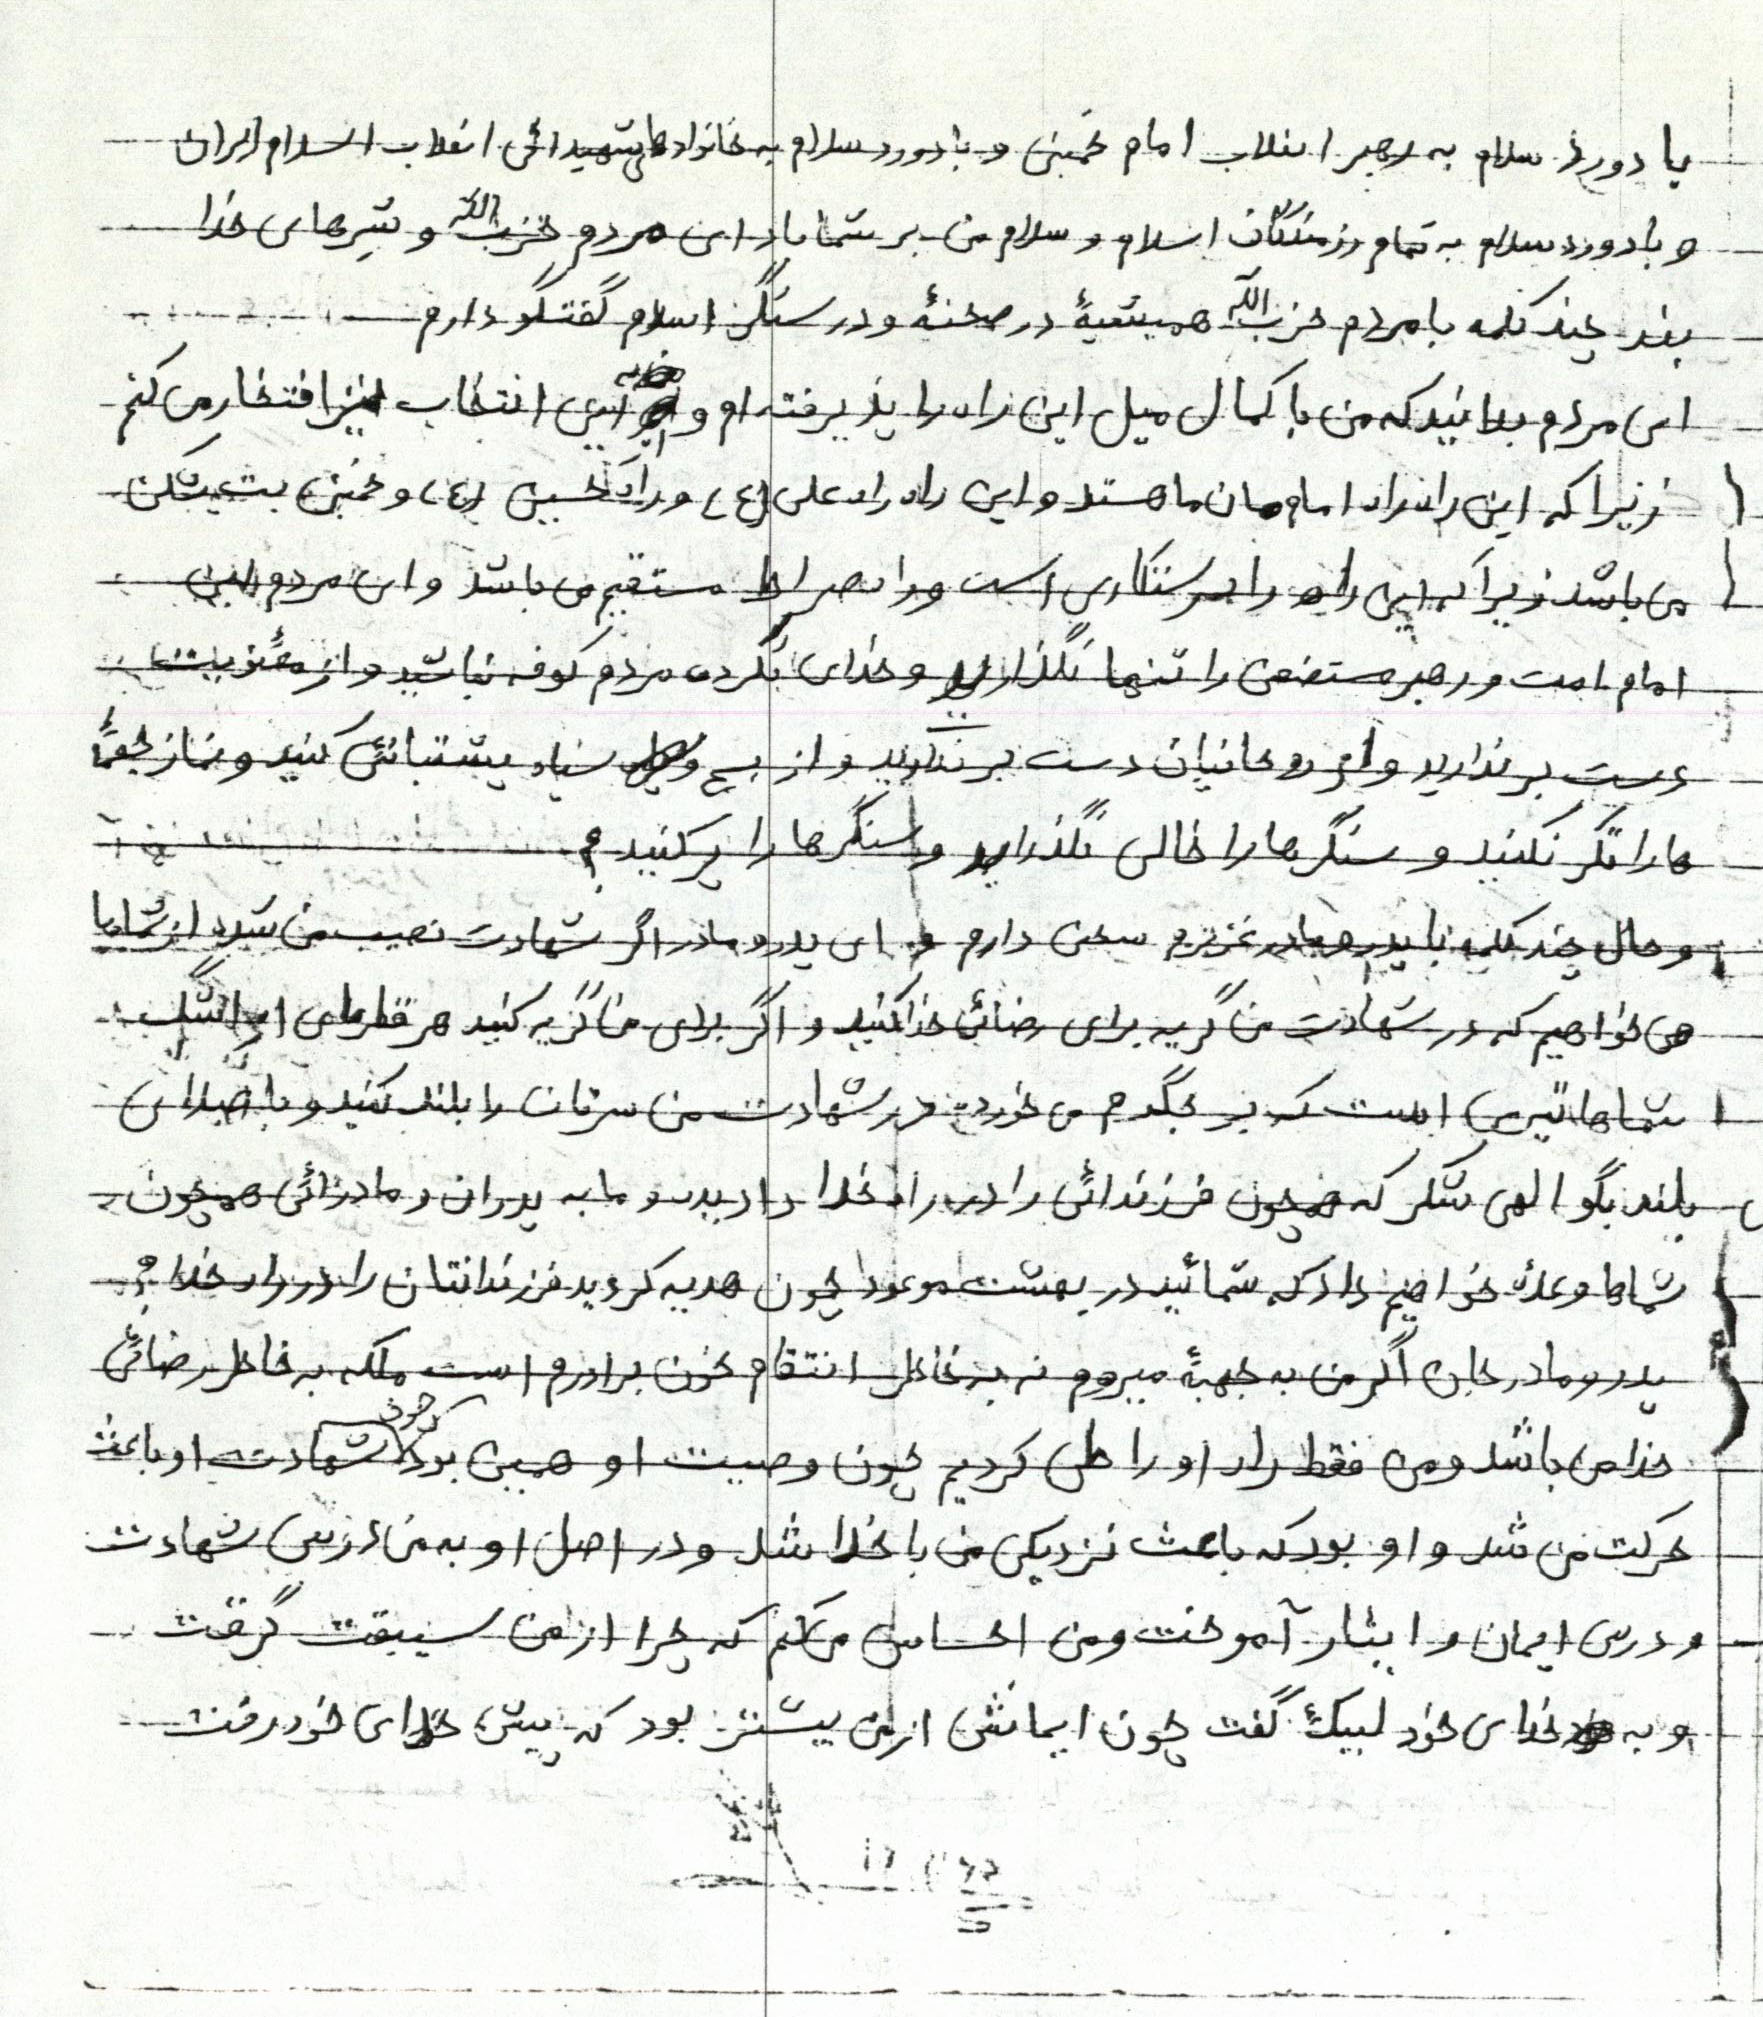 با دورد سلام به رهبر انقلاب امام خمینی و با دورد سلام به خانوادهای شهیدائی انقلاب اسلام ایران
و با دورد سلام به تمام رزمندگان اسلام و سلام من بر شما باد ای مردم حزب الله و شیرهای خدا
بند چند کلمه با مردم حزب الله همیشیهٔ در صحنهٔ و در سنگر اسلام گفتگو دارم
ای مردم بدانید که من با کمال میل این راه را پذیرفته ام و به این انتخاب نیز افتخار می کنم
زیرا که این راه راه امامان ما هستد و این راه راه علی (ع) و راه حسین (ع) و خمینی بت شکن
می باشد زیرا که این راه راه رستگاری است و راه صراط مستقیم می باشد و ای مردم این
امام امت و رهبر مستضعفی را تنها نگذارید و خدای نکرده مردم کوفه نباشید و از معنویت
دست بر ندارید و از روحانیان دست بر ندارید و از بسیج و سپاه پشتبانئی کنید و نماز جمعهٔ
ها را ترک نکنید و سنگرها را خالی نگذارید و سنگرها را پر کنید ؟
و حال چند کلمه با پدر و مادر عزیزم سخن دارم و ای پدر و مادر اگر شهادت نصیب من شد از شماها
می خواهیم که در شهادت من گریه برای رضائی خدا کنید و اگر برای من گریه کنید هر قطرهای از اشک
شماها تیری است که بر جگرم می خورد در شهادت من سرتان را بلند کنید و با صدای
بلند بگو الهی شکر که همچون فرزندانئی را در راه خدا دادیدن و ما به پدران و مادرانئی همچون
شماها وعدهٔ خواهیم داد که شمائید در بهشت موعود چون هدیه کردید فرزندانتان را در راه خدا ؟
پدر و مادر جان اگر من به جبههٔ میروم نه به خاطر انتقام خون برادرم است بلکه به خاطر رضائی
خدا می باشد و من فقط راه او را طی کردیم چون وصیت او همین بود چون شهادت او باعث
حرکت من شد و او بود که باعث نزدیکی من با خدا شد و در اصل او به من درس شهادت
و درس ایمان و ایثار آموخت و من احساس می کنم که چرا از من سبقت گرفت
و به خدای خود لبیک گفت چون ایمانش از من بیشتر بود که پیش خدای خود رفت